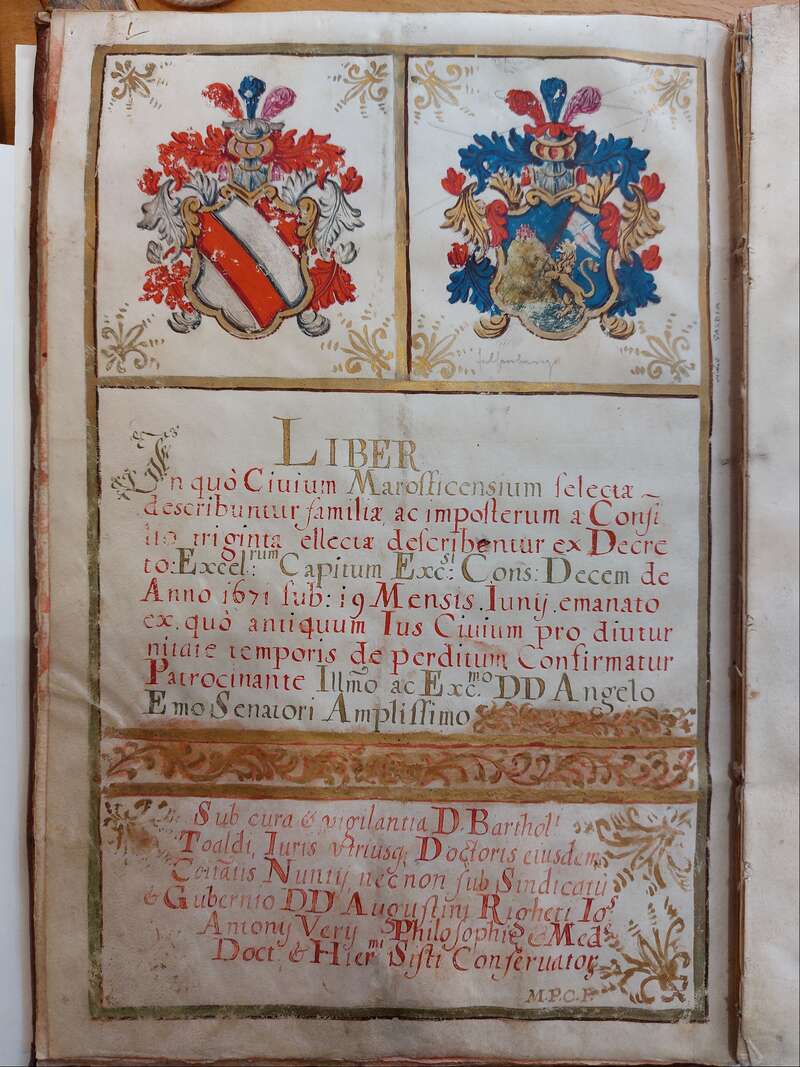 LIBER
In quò Ciuium Marosticensium selectæ
describuntur familiæ, ac imposterum a Consi
lio triginta ellectæ describentur ex Decre
to: Excel:rum Capitum Exc:si Cons: Decem de
Anno 1671 sub: 19 Mensis Iunij emanato
ex quò antiquum Ius Ciuium pro diutur
nitate temporis de perditum Confirmatur
Patrocinante Illmo ac Exc.mo DD Angelo
Emo Senatori Amplissimo
Sub cura & vigilantia D. Barthol:
Toaldi Iuris vtriusq; Doctoris eiusdem
Nuntij nec non sub Sindicatu
& Gubernio DD Augustini Righeti Ios
Antonij Verij Philosophię & Med
Doct. & Hiermi Sisti Conseruator
M.P.C.F.